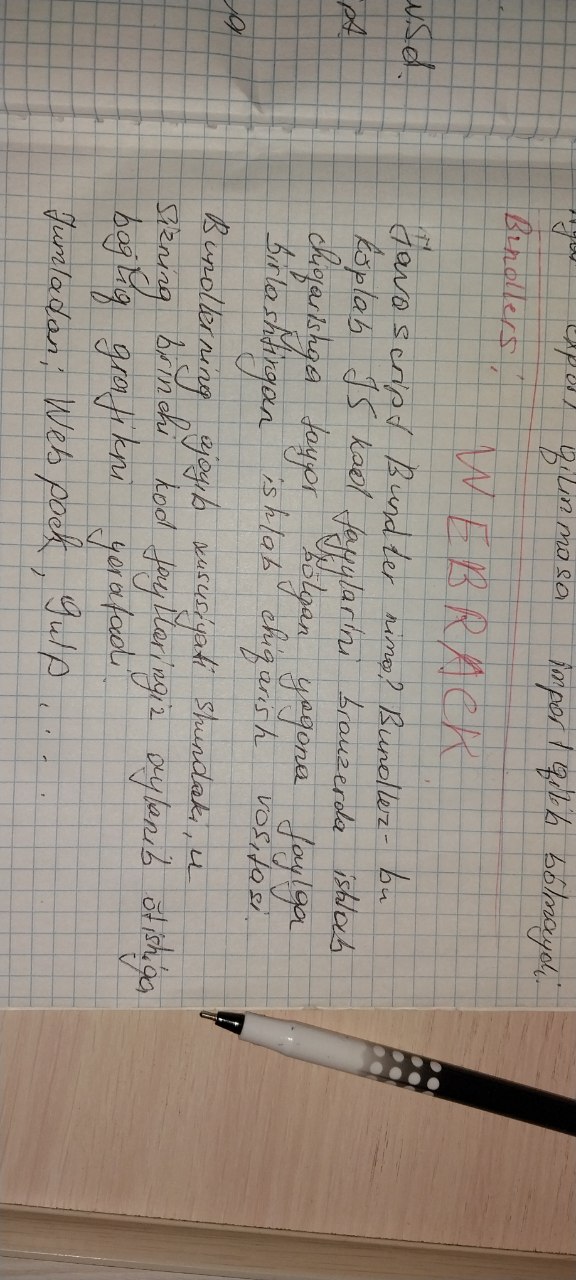 export qilinmasa import qilib bo'lmaydi.
Bundlers;
WEBPACK
Javascript Bundler nima? Bundler - bu
ko'plab JS kod fayllarini brauzerda ishlab
chiqarishga tayyor bo'lgan yagona faylga
birlashtirgan ishlab chiqarish vositasi.
Bundlerning ajoyib xususiyati shundaki, u
sizning birinchi kod fayllaringiz aylanib o'tishiga
bog'liq grafikni yaratadi.
Jumladan; Webpack, gulp . . . .